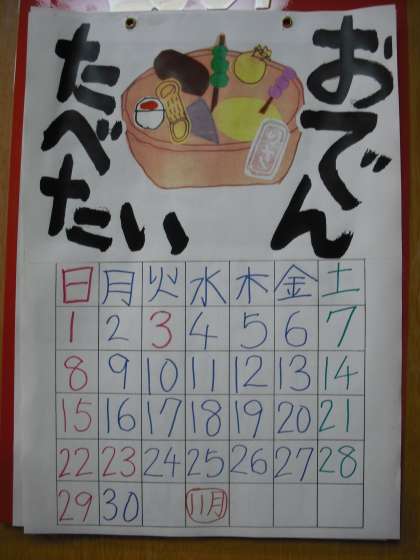 おでん
たべたい
日 月 火 水 木 金 土
1 2 3 4 5 6 7
8 9 10 11 12 13 14
15 16 17 18 19 20 21
22 23 24 25 26 27 28
29 30 11月